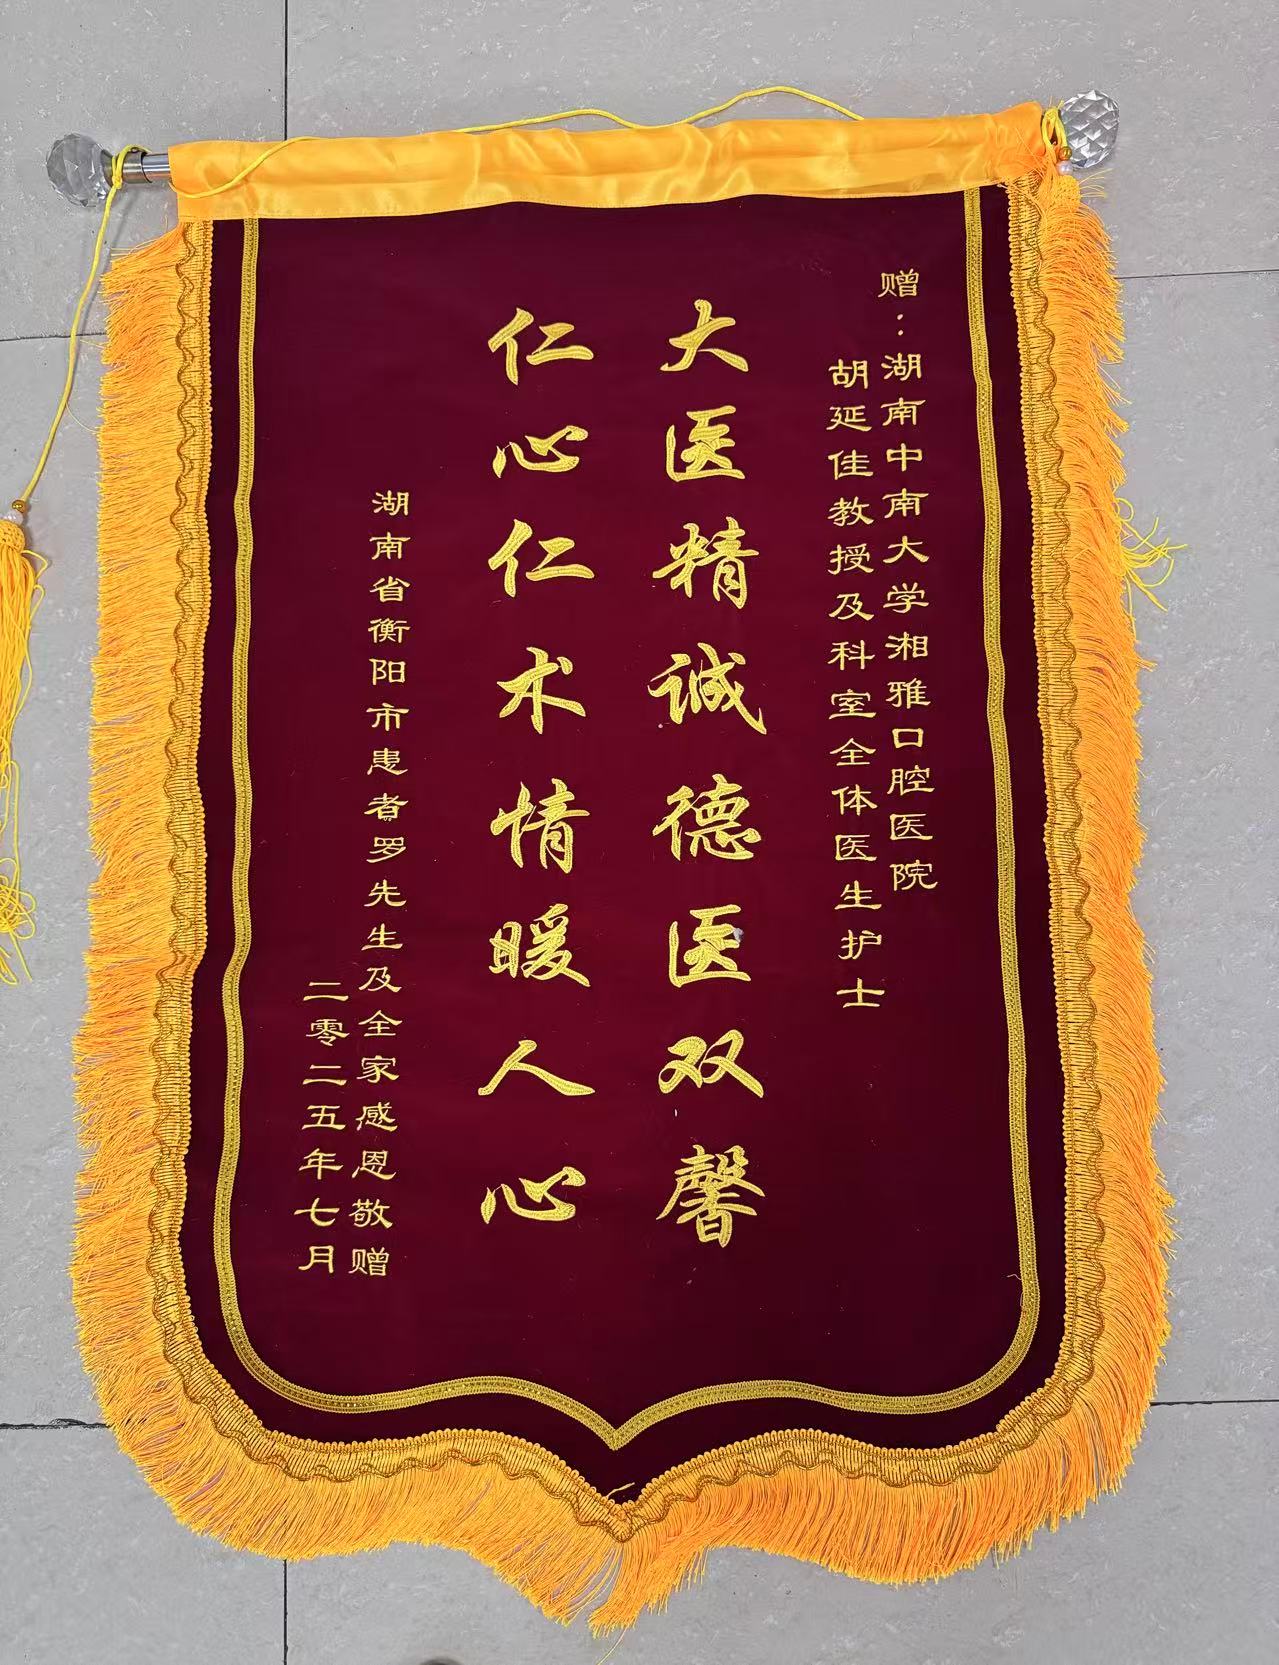 赠：湖南中南大学湘雅口腔医院
胡延佳教授及科室全体医生护士
大医精诚德医双馨
仁心仁术情暖人心
湖南省衡阳市患者罗先生及全家感恩敬赠
二零二五年七月